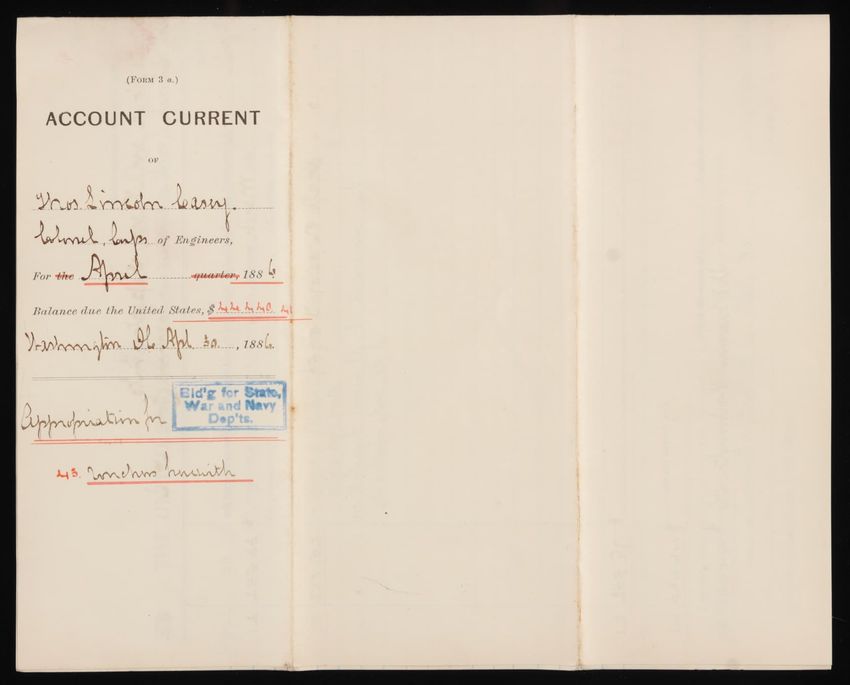 (FORM 3 a.)
ACCOUNT CURRENT
OF
Thos. Lincoln Casey.
Colonel, Corps of Engineers,
For the April quarter, 1886
Balance due the United States, $
Washington DC Apl. 30, 1886.
Appropriation for Bld'g for State, War and Navy Dep'ts.
43. vouchers herewith